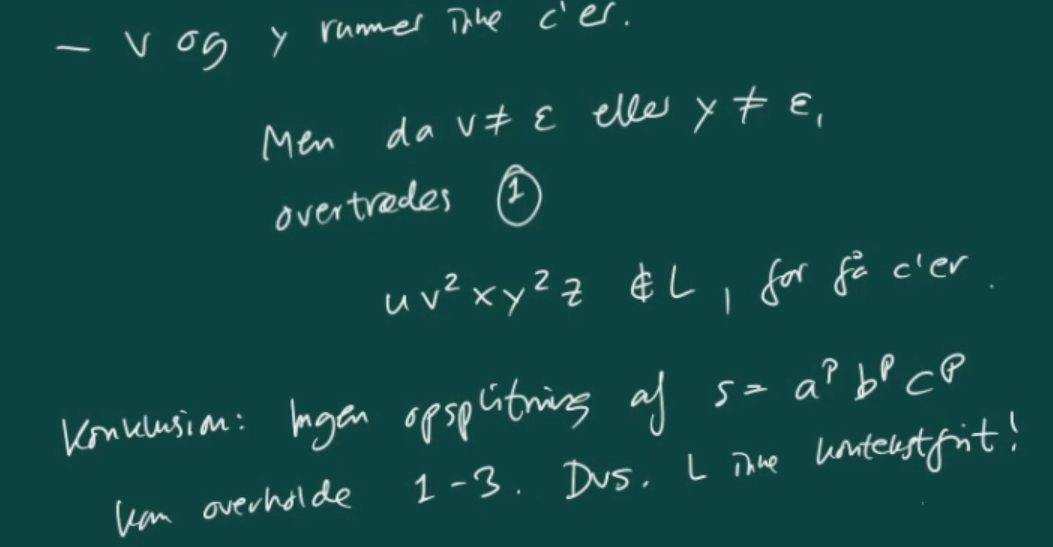 — v og y rummer ikke c'er.
Men da v ≠ ε eller y ≠ ε,
overtrædes ①
uv²xy²z ∉ L, for få c'er.
Konklusion: Ingen opsplitning af s = aᵖ bᵖ cᵖ
kan overholde 1-3. Dvs. L ikke kontekstfrit!